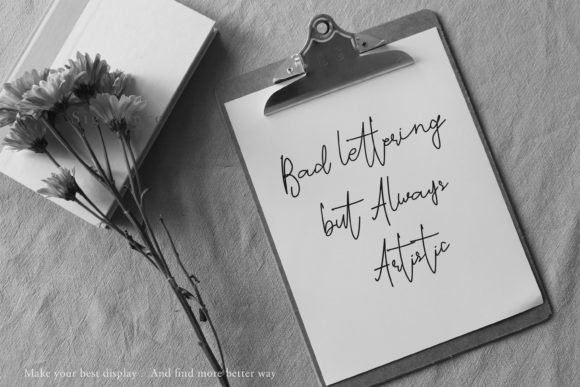 Bad lettering
but Always
Artistic
Make your best display . And find more better way